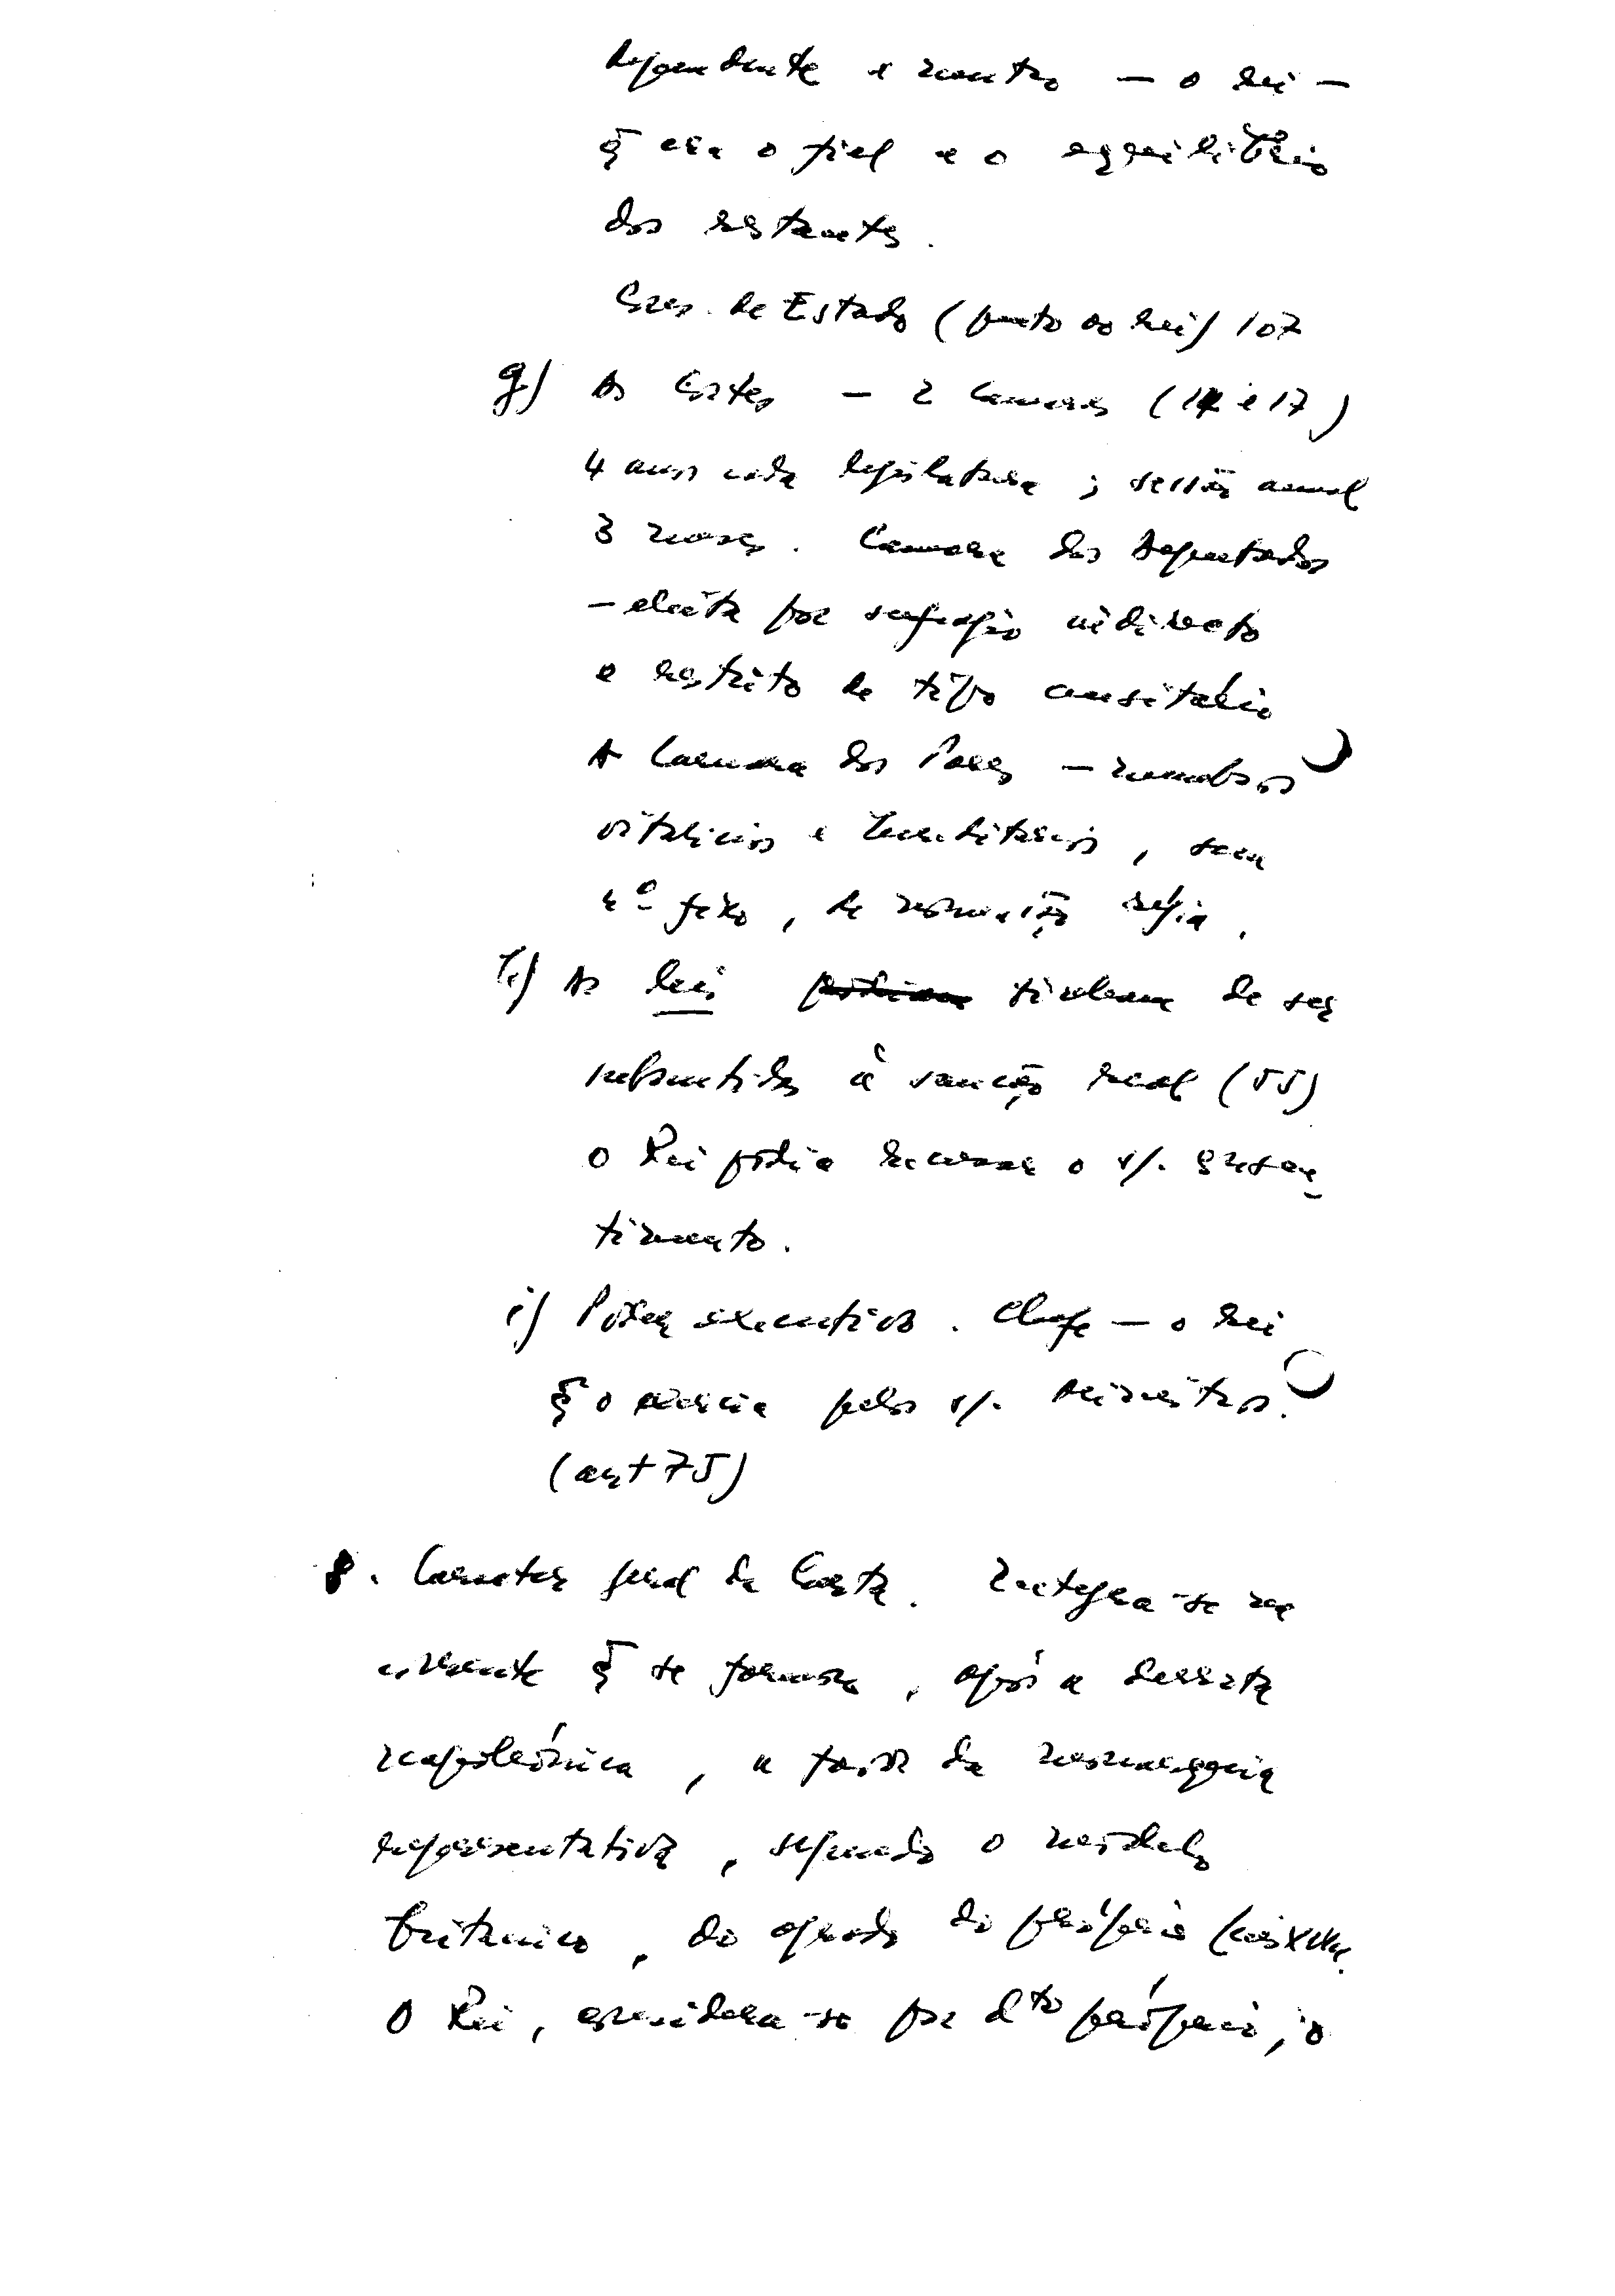 dependente e neutro — o rei —
q̃ era o fiel e o equilíbrio
dos restantes.
Cons. de Estado (junto ao rei) 107
g) As Cortes — 2 Camaras (14 e 17)
4 anos cada legislatura; sessão anual
3 meses. Camara dos Deputados
— eleita por sufragio indirecto
e restrito de tipo censitário
A Camara dos Pares — membros
vitalicios e hereditários, sem
nº fixo, de nomeação régia.
h) As leis podiam tinham de ser
submetidas à sanção real (55)
o Rei podia recusar o s/. consen-
timento.
i) Poder executivo. Chefe — o rei
q̃ o exercia pelos s/. ministros.
(art 75)
8. Caracter geral da Carta. Integra-se na
corrente q̃ se formou, após a derrota
napoleónica, a favor da monarquia
representativa, segundo o modelo
britanico, do agrado do próprio Luis XVIII.
O Rei, considera-se por dto próprio, o